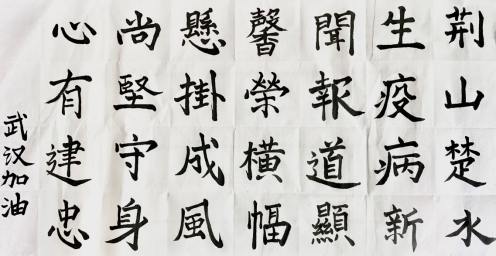 荆山楚水
生疫病新
聞報道顯
馨榮橫幅
懸掛成風
尚堅守身
心有建忠
武汉加油